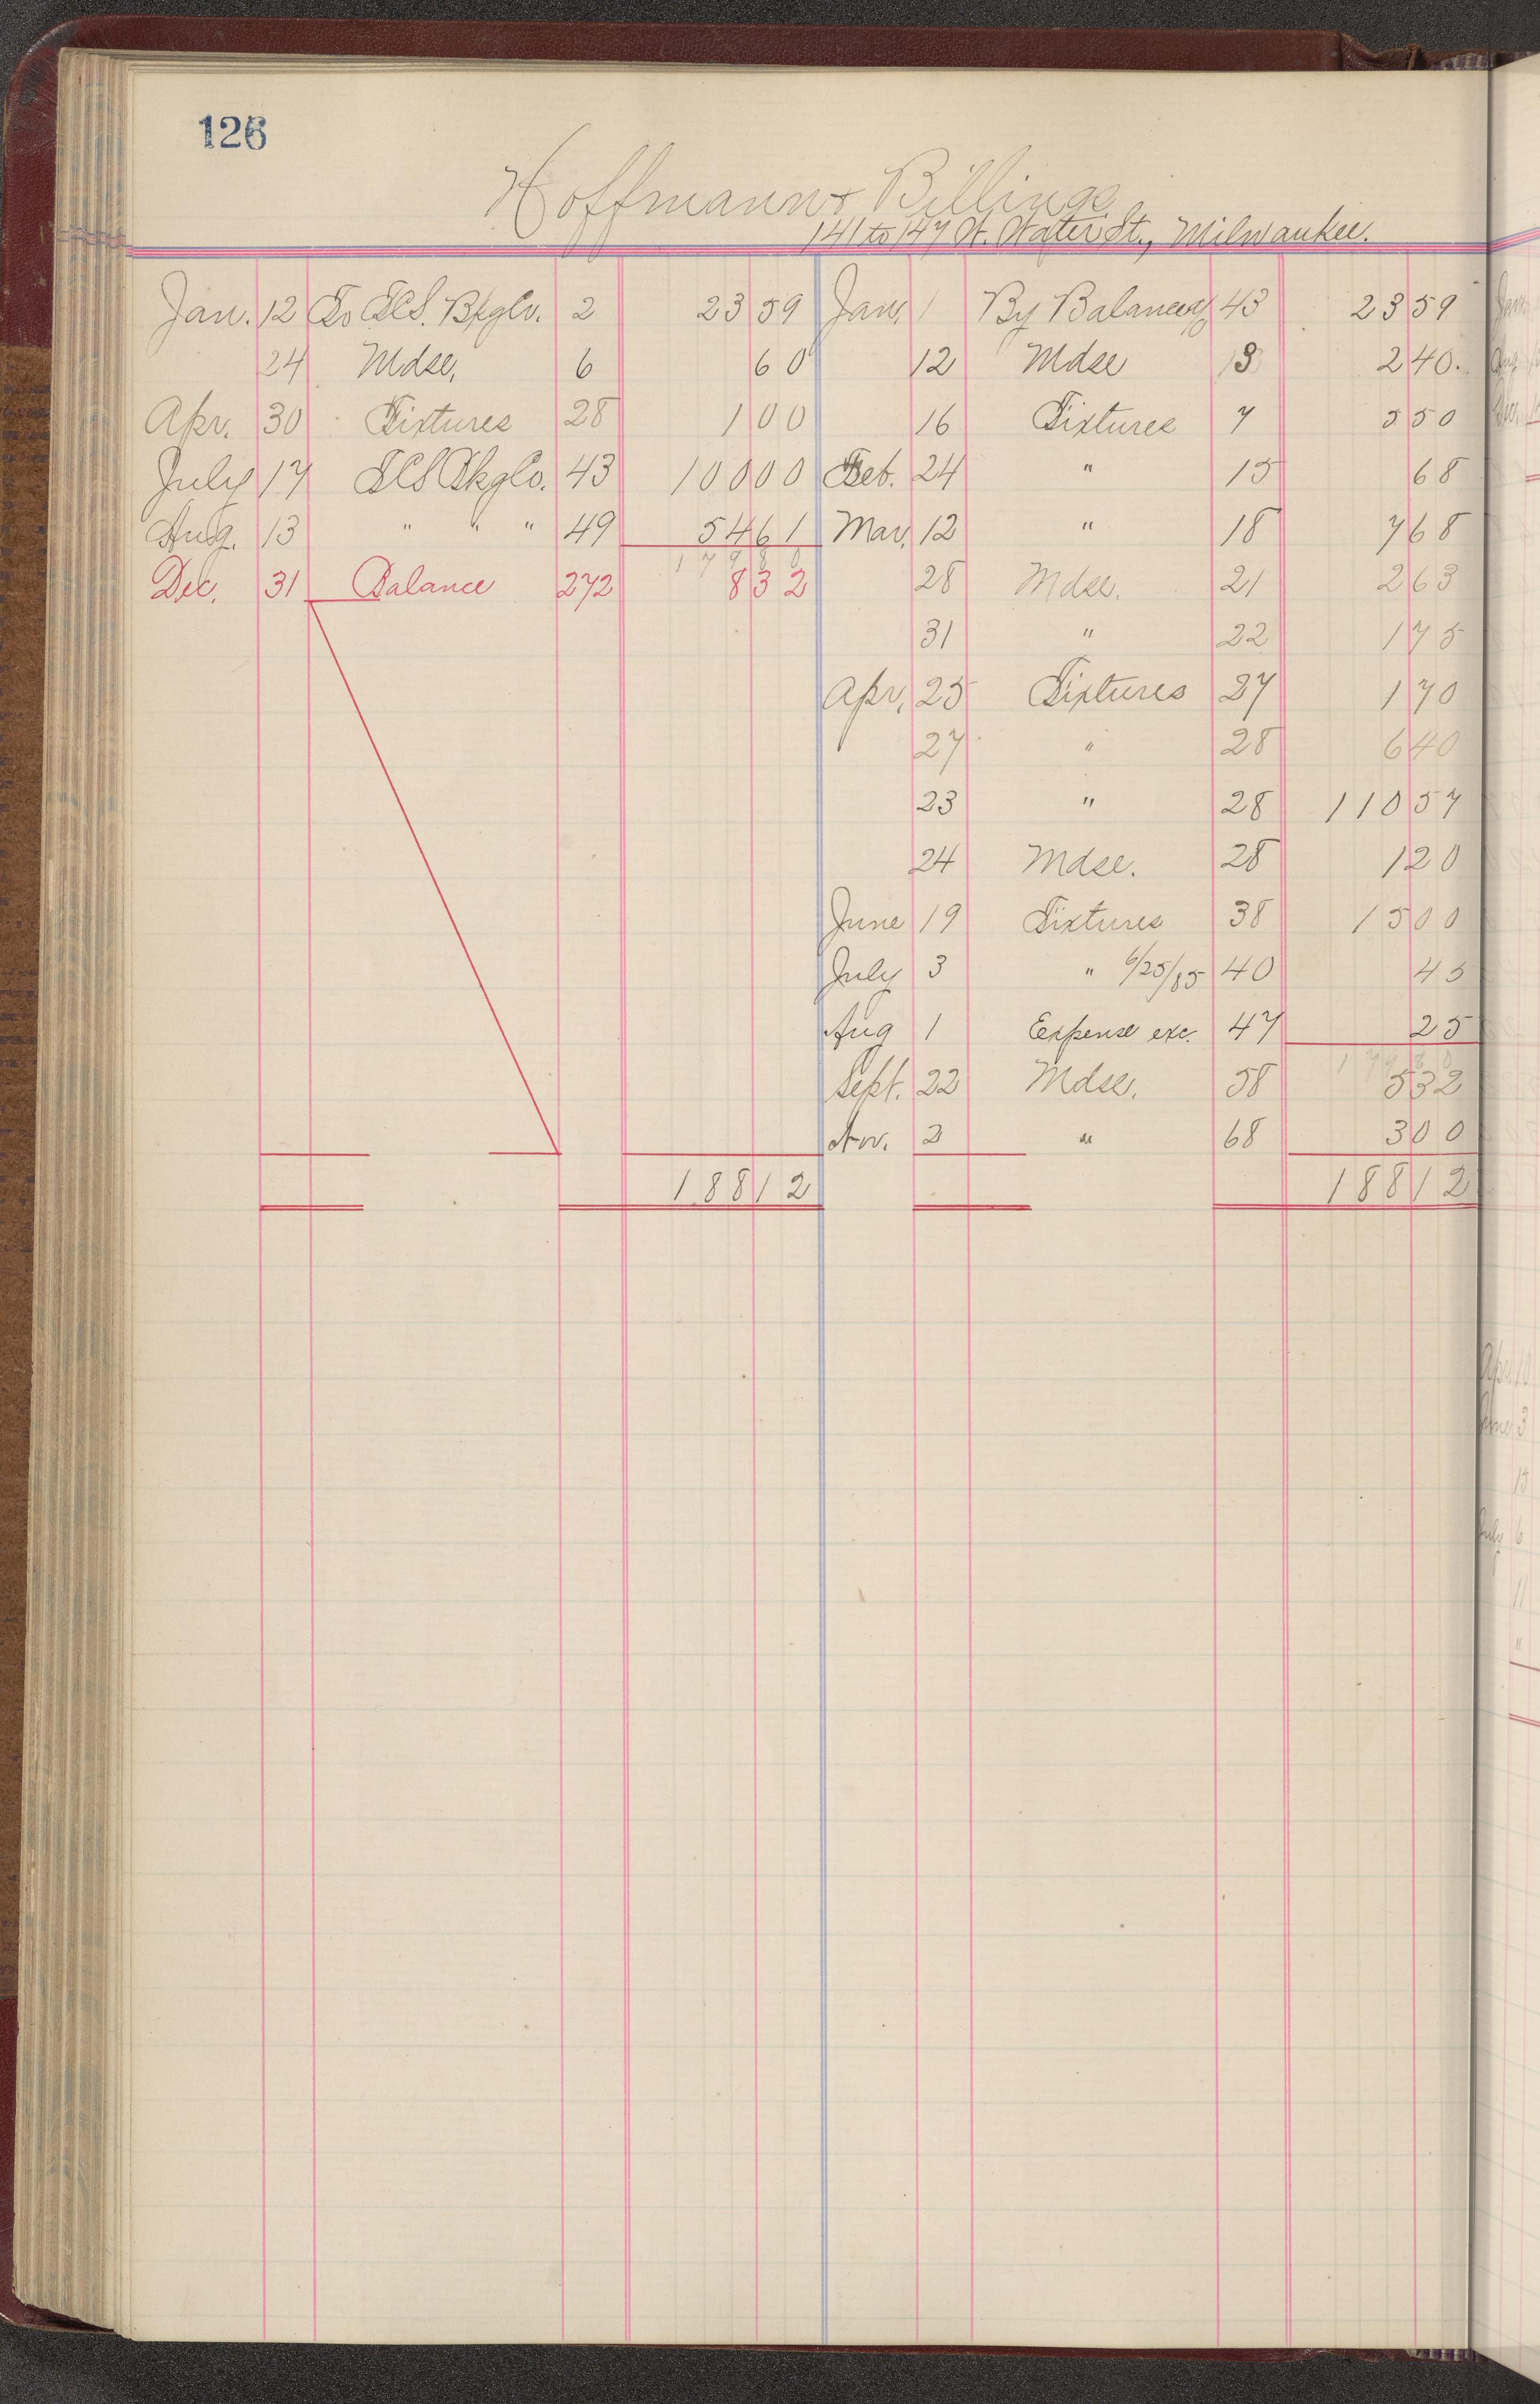 126
Hoffmann & Billings
141 to 147 W. Water St., Milwaukee.
Jan. 12 To T.C.S. Bkg Co. 2 23 59 Jan. 1 By Balance 43 23 59
24 Mdse. 6 60 12 Mdse 3 2 40
Apr. 30 Fixtures 28 1 00 16 Fixtures 7 5 50
July 17 T.C.S Bkg Co. 43 100 00 Feb. 24 " 15 68
Aug. 13 " " " 49 54 61 Mar. 12 " 18 7 68
179 80
Dec. 31 Balance 272 8 32 28 Mdse. 21 2 63
31 " 22 1 75
Apr. 25 Fixtures 27 1 70
27 " 28 6 40
23 " 28 110 57
24 Mdse. 28 1 20
June 19 Fixtures 38 15 00
July 3 " 6/25/85 40 45
Aug 1 Expense exc. 47 25
179 80
Sept. 22 Mdse. 58 5 32
Nov. 2 " 68 3 00
188 12 188 12